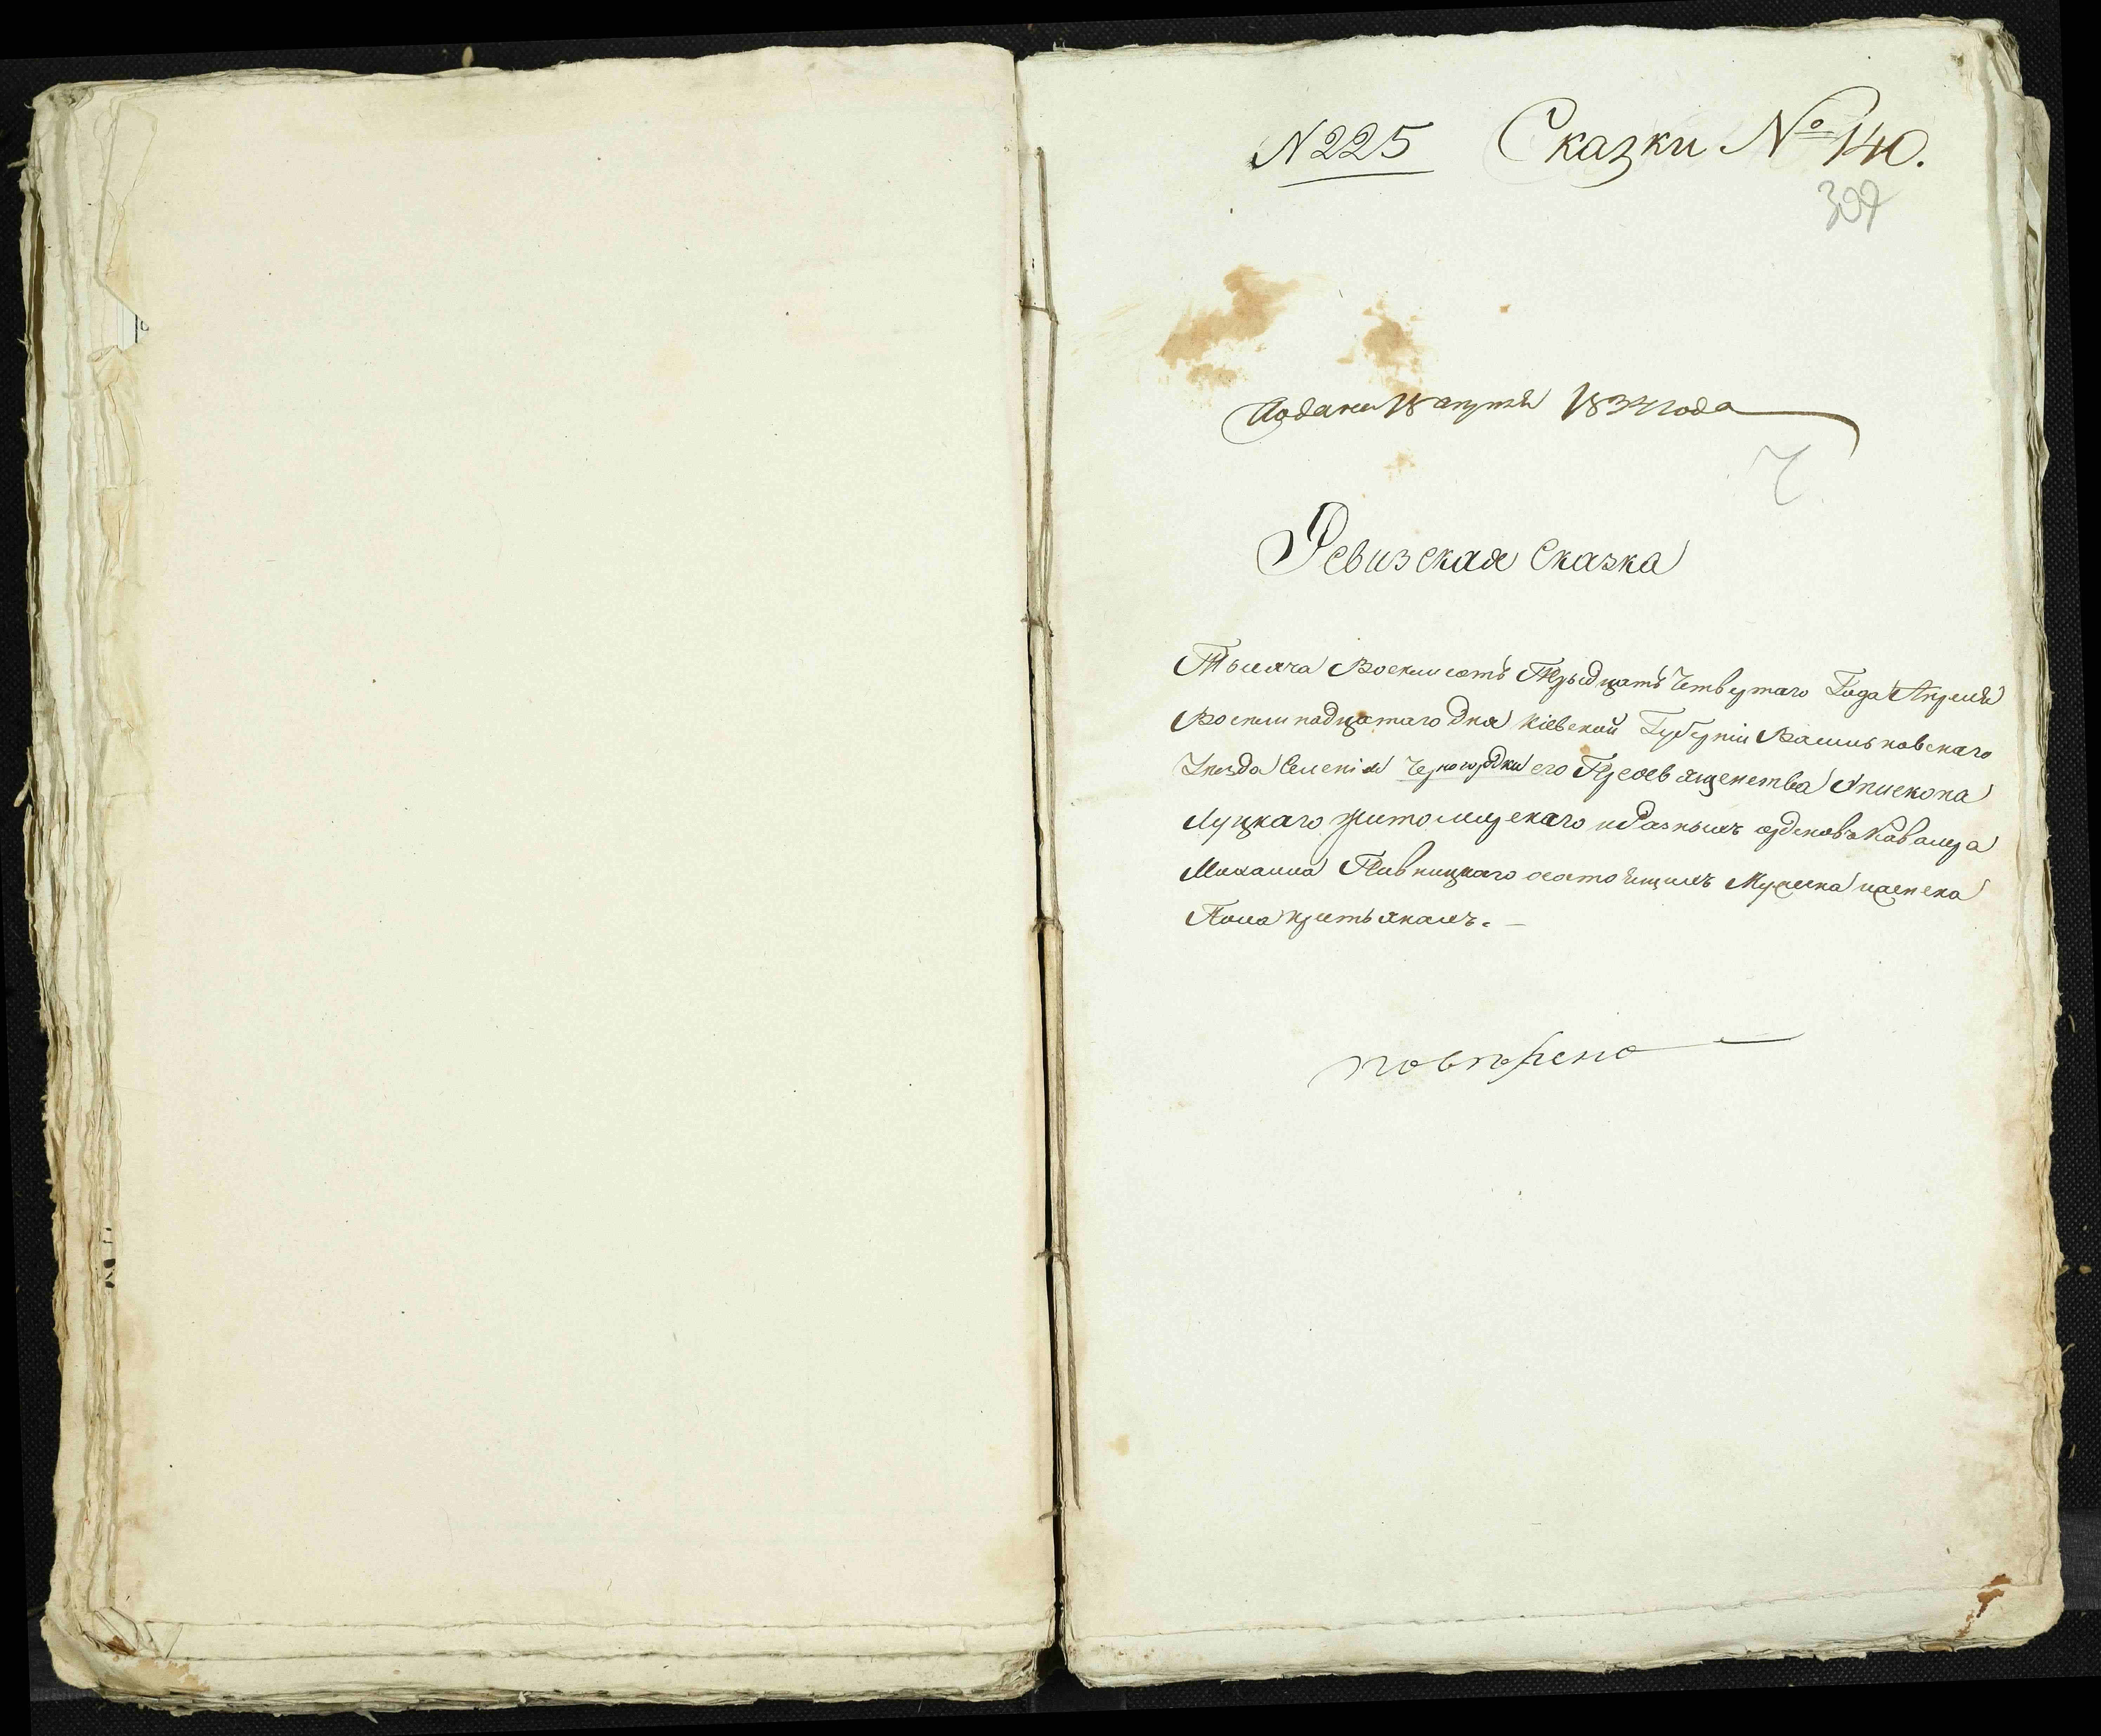 N 225 Сказки № 140.
307
Подана 18 апреля 1834 года
Ревизская Сказка
Тысяча Восемьсотъ Трыдцать Четвертаго Года Апреля
Восемнадцатаго дня Кіевской Губерніи Васильковскаго
Уезда Селенія Черногородки его Преосвященства Епископа
Луцкаго житомирскаго и Разныхъ орденовъ Кавалера
Михаила Пивницкаго осостоящихъ Мужеска иженска
Пола крестьянахъ. —
поверено